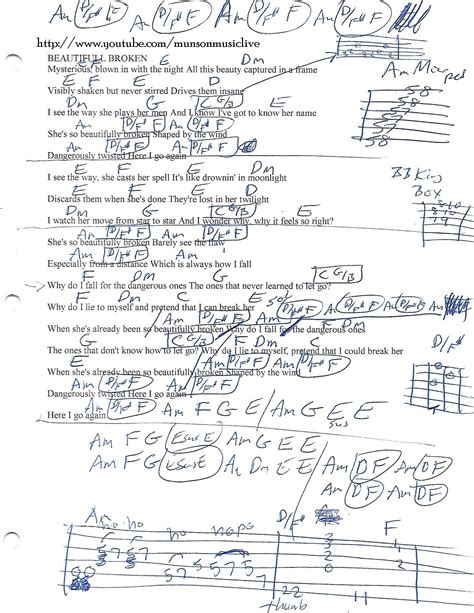 Am D/F# F Am D/F# F Am D/F# F
http://www.youtube.com/munsonmusiclive
BEAUTIFULL BROKEN E Dm
Mysterious, blown in with the night All this beauty captured in a frame
E F E D
Visibly shaken but never stirred Drives them insane
Dm G C G/B E
I see the way she plays her men And I know I've got to know her name
Am D/F# F Am D/F# F
She's so beautifully broken Shaped by the wind
Am D/F# F Am D/F# F
Dangerously twisted Here I go again
E Dm
I see the way, she casts her spell It's like drownin' in moonlight
E F E D
Discards them when she's done They're lost in her twilight
Dm G C G/B E
I watch her move from star to star And I wonder why, why it feels so right?
Am D/F# F Am D/F# F
She's so beautifully broken Barely see the flaw
Am D/F# F Am
Especially from a distance Which is always how I fall
F Dm G C G/B
Why do I fall for the dangerous ones The ones that never learned to let go?
F Dm C E solo
Why do I lie to myself and pretend that I can break her
Am D/F# F Am D/F# F Am D/F# F
When she's already been so beautifully broken Why do I fall for the dangerous ones
G C G/B F Dm C
The ones that don't know how to let go? Why do I lie to myself, pretend that I could break her
E Am D/F# F Am D/F# F
When she's already been so beautifully broken Shaped by the wind
Am D/F# F Am D/F# F
Dangerously twisted Here I go again
Am D/F# F Am F G E / Am G E E
Here I go again
sus
Am F G Esus E Am G E E
Am F G Esus E Am Dm E E Am D F Am D F
Am D F Am D F
Am
BB King
Box
D/F#
Am ho ho ho D/F# F
57 57 57
22
thumb